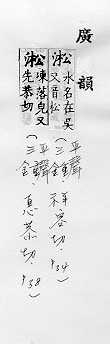 廣韻
淞 水名在吳
又音松
淞 凍落皃又
先恭切
(平
三鍾)祥容切.P34)
(平聲
三鍾)息恭切.P38)